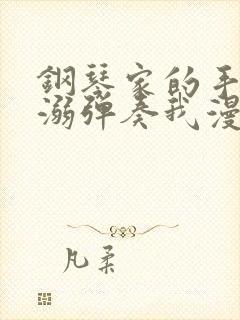 鋼琴家的手
溺彈奏我漫
凡柔